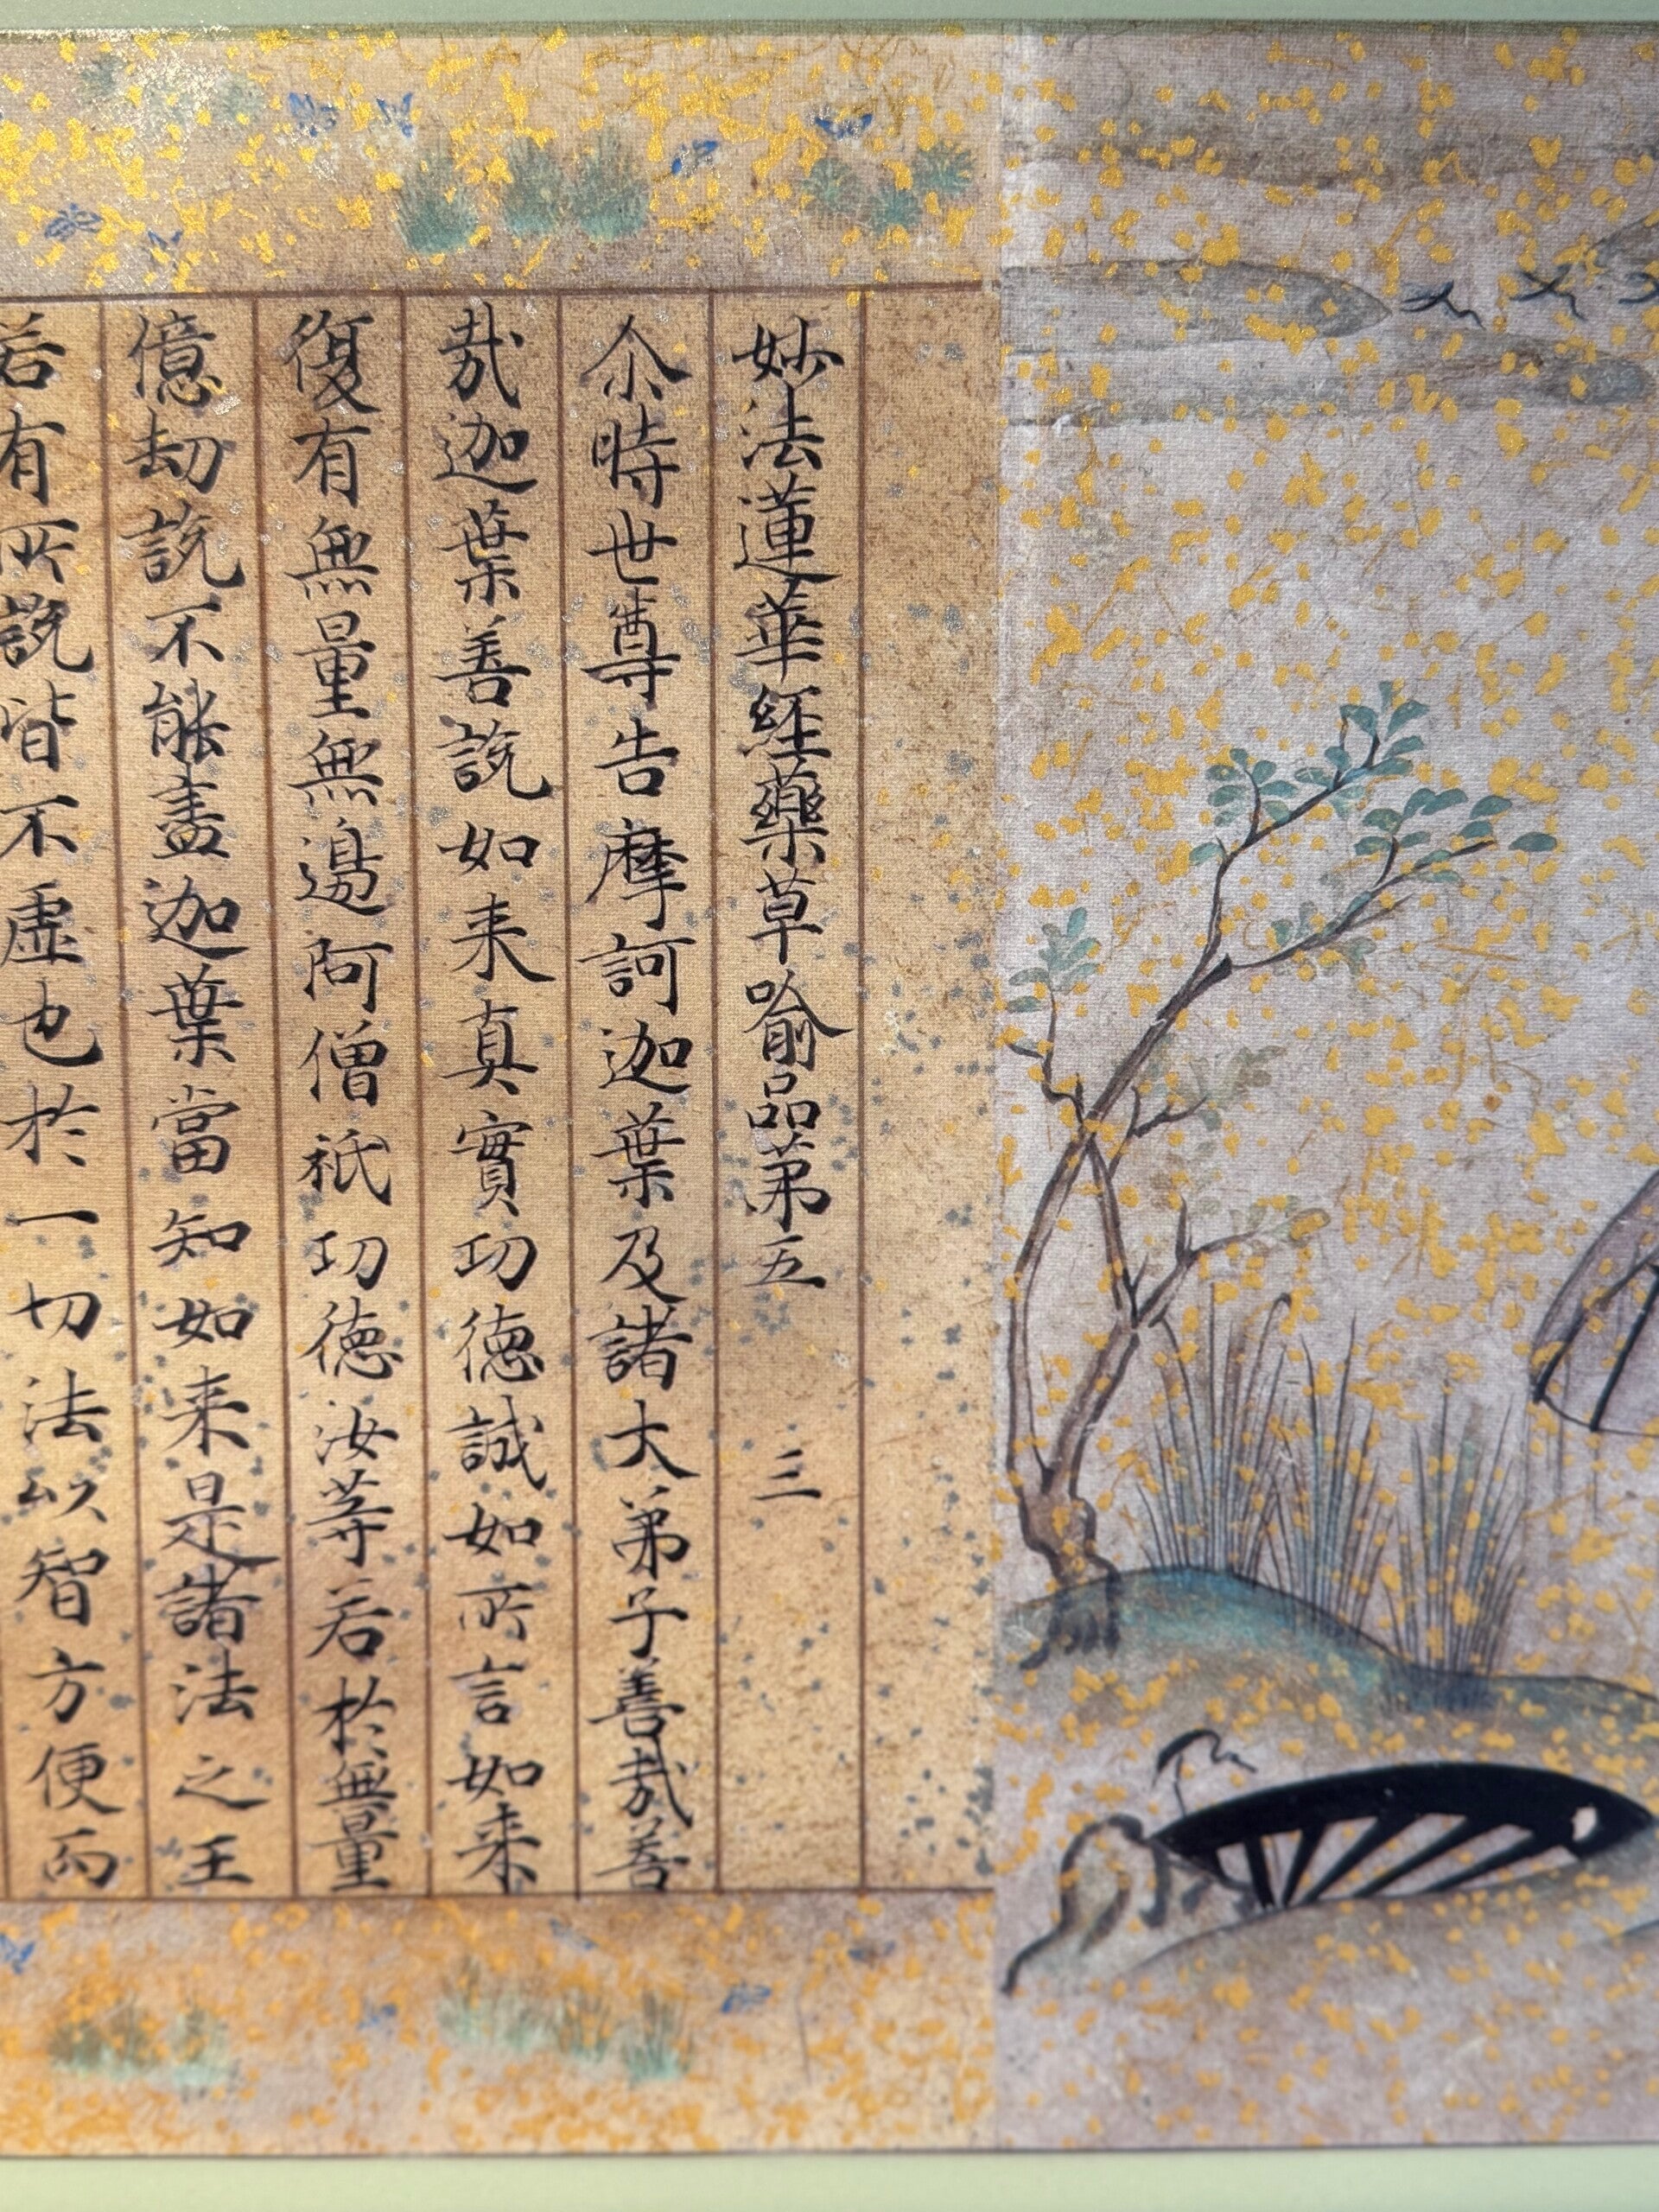 妙法蓮華經藥草喻品第五 三
尒時世尊告摩訶迦葉及諸大弟子善哉善
哉迦葉善說如来真實功德誠如所言如来
復有無量無邊阿僧祇功德汝等若於無量
億劫說不能盡迦葉當知如来是諸法之王
若有所說皆不虛也於一切法以智方便而